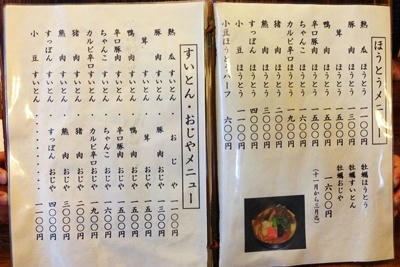 ほうとうメニュー
熟瓜ほうとう 一一〇〇円
豚肉ほうとう 一三〇〇円
茸ほうとう 一五〇〇円
鴨肉ほうとう 一五〇〇円
辛口豚肉ほうとう 一五〇〇円
ちゃんこほうとう 一六〇〇円
カルビ辛口ほうとう 一九〇〇円
猪肉ほうとう 二〇〇〇円
熊肉ほうとう 三〇〇〇円
すっぽんほうとう 四〇〇〇円
小豆ほうとう 一一〇〇円
小豆ほうとうハーフ 六〇〇円
牡蠣ほうとう
牡蠣すいとん
牡蠣おじや
一六〇〇円
(十一月から三月迄)
すいとん・おじやメニュー
熟瓜すいとん おじや 一一〇〇円
豚肉すいとん 豚肉おじや 一三〇〇円
茸すいとん 茸おじや 一五〇〇円
鴨肉すいとん 鴨肉おじや 一五〇〇円
辛口豚肉すいとん 辛口豚肉おじや 一五〇〇円
ちゃんこすいとん ちゃんこおじや 一六〇〇円
カルビ辛口すいとん カルビ辛口おじや 一九〇〇円
猪肉すいとん 猪肉おじや 二〇〇〇円
熊肉すいとん 熊肉おじや 三〇〇〇円
すっぽんすいとん すっぽんおじや 四〇〇〇円
小豆すいとん 一一〇〇円